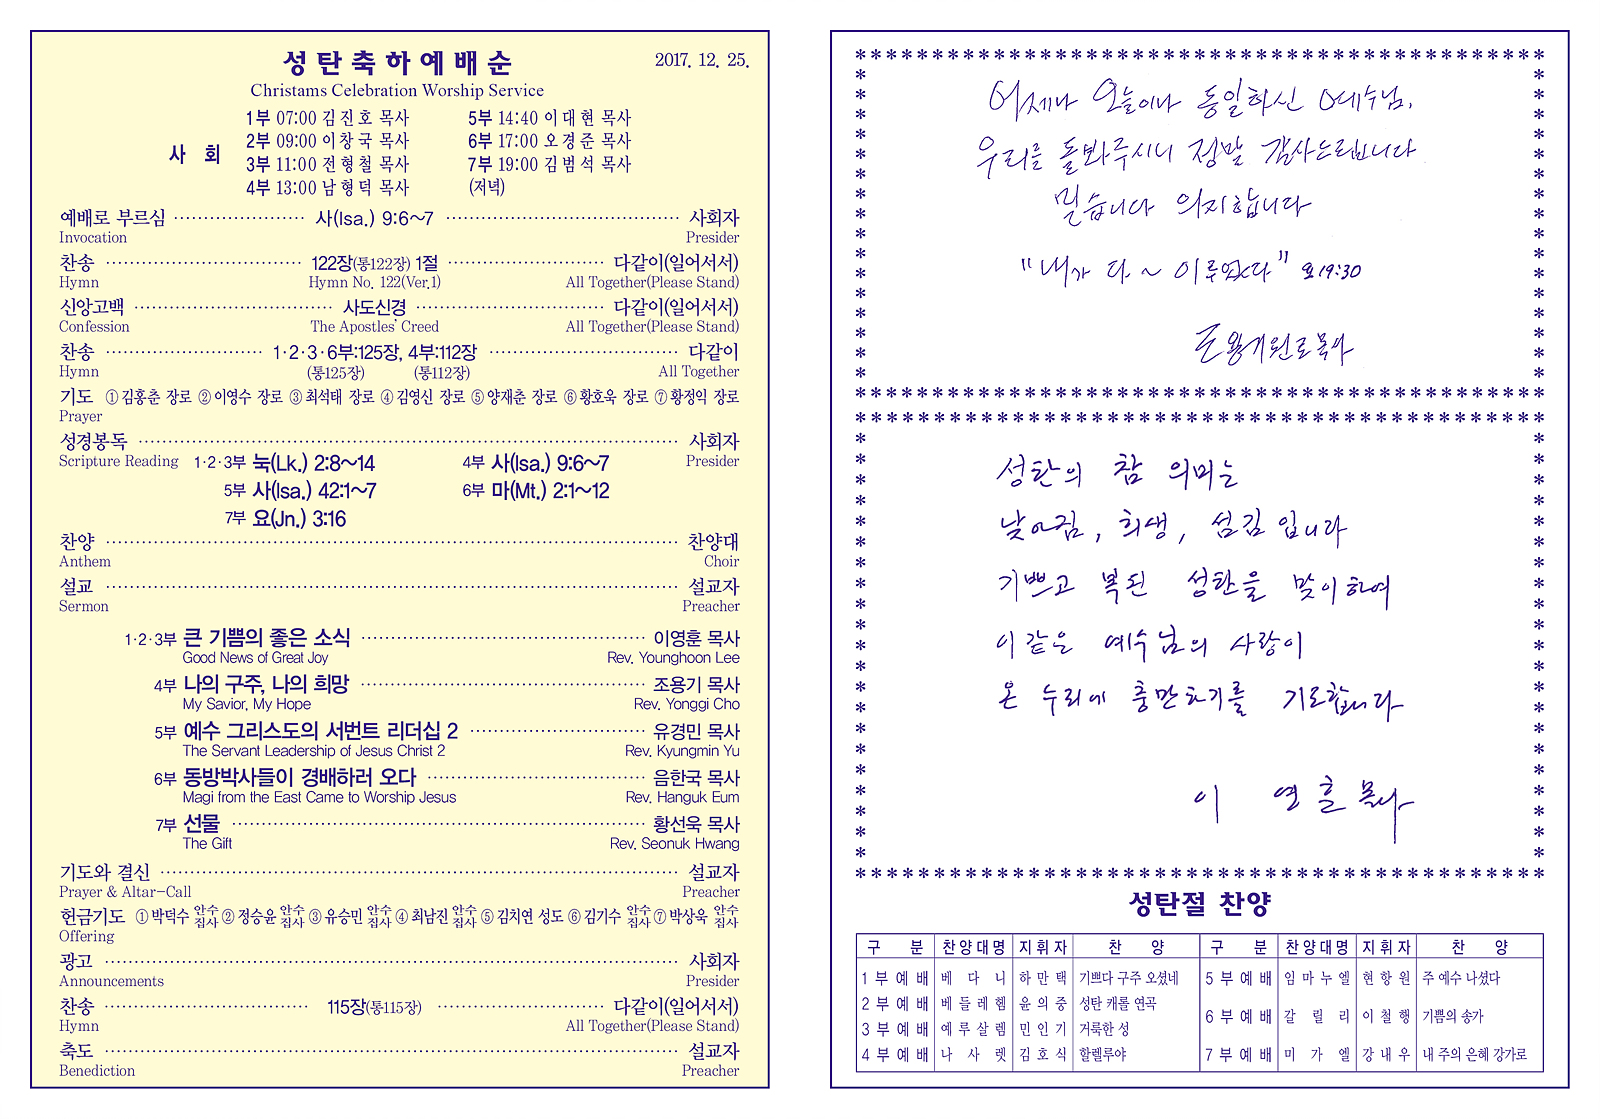 성탄축하예배순
2017. 12. 25.
Christams Celebration Worship Service
사 회
1부 07:00 김진호 목사
2부 09:00 이창국 목사
3부 11:00 전형철 목사
4부 13:00 남형덕 목사
5부 14:40 이대현 목사
6부 17:00 오경준 목사
7부 19:00 김범석 목사
(저녁)
예배로 부르심 사(Isa.) 9:6~7 사회자
Invocation Presider
찬송 122장(통122장) 1절 다같이(일어서서)
Hymn Hymn No. 122(Ver.1) All Together(Please Stand)
신앙고백 사도신경 다같이(일어서서)
Confession The Apostles' Creed All Together(Please Stand)
찬송 1·2·3·6부:125장, 4부:112장 다같이
Hymn (통125장) (통112장) All Together
기도 ①김홍춘 장로 ②이영수 장로 ③최석태 장로 ④김영신 장로 ⑤양재춘 장로 ⑥황호욱 장로 ⑦황정익 장로
Prayer
성경봉독 사회자
Scripture Reading 1·2·3부 눅(Lk.) 2:8~14 4부 사(Isa.) 9:6~7 Presider
5부 사(Isa.) 42:1~7 6부 마(Mt.) 2:1~12
7부 요(Jn.) 3:16
찬양 찬양대
Anthem Choir
설교 설교자
Sermon Preacher
1·2·3부 큰 기쁨의 좋은 소식 이영훈 목사
Good News of Great Joy Rev. Younghoon Lee
4부 나의 구주, 나의 희망 조용기 목사
My Savior, My Hope Rev. Yonggi Cho
5부 예수 그리스도의 서번트 리더십 2 유경민 목사
The Servant Leadership of Jesus Christ 2 Rev. Kyungmin Yu
6부 동방박사들이 경배하러 오다 음한국 목사
Magi from the East Came to Worship Jesus Rev. Hanguk Eum
7부 선물 황선욱 목사
The Gift Rev. Seonuk Hwang
기도와 결신 설교자
Prayer & Altar-Call Preacher
헌금기도 ①박덕수 안수집사 ②정승윤 안수집사 ③유승민 안수집사 ④최남진 안수집사 ⑤김치연 성도 ⑥김기수 안수집사 ⑦박상욱 안수집사
Offering
광고 사회자
Announcements Presider
찬송 115장(통115장) 다같이(일어서서)
Hymn All Together(Please Stand)
축도 설교자
Benediction Preacher
어제나 오늘이나 동일하신 예수님.
우리를 돌봐주시니 정말 감사드립니다
믿습니다 의지합니다
"내가 다 ~ 이루었다" 요19:30
조용기원로목사
성탄의 참 의미는
낮아짐, 희생, 섬김입니다
기쁘고 복된 성탄을 맞이하여
이 같은 예수님의 사랑이
온 누리에 충만하기를 기도합니다
이 영훈 목사
성탄절 찬양
구 분 찬양대명 지휘자 찬 양 구 분 찬양대명 지휘자 찬 양
1부예배 베다니 하만택 기쁘다 구주 오셨네
2부예배 베들레헴 윤의중 성탄 캐롤 연곡
3부예배 예루살렘 민인기 거룩한 성
4부예배 나사렛 김호식 할렐루야
5부예배 임마누엘 현항원 주 예수 나셨다
6부예배 갈릴리 이철행 기쁨의 송가
7부예배 미가엘 강내우 내 주의 은혜 강가로